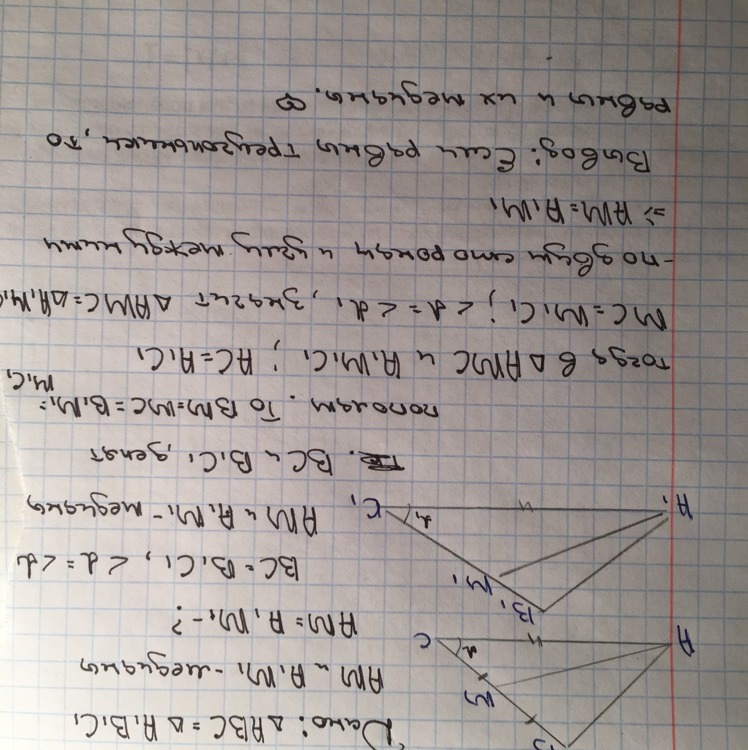 Дано: △ABC = △A₁B₁C₁
AM и A₁M₁ - медианы
AM = A₁M₁ - ?
B
M
A
C
α
BC = B₁C₁, <α = <α
AM и A₁M₁ - медианы
B₁
M₁
A₁
C₁
α₁
BC и B₁C₁, делят
пополам. То BM=MC=B₁M₁=
M₁C₁
тогда в △AMC и A₁M₁C₁; AC=A₁C₁
MC=M₁C₁; <α = <α₁, значит △AMC=△A₁M₁C₁
-по двум сторонам и углу между ними
=> AM=A₁M₁
Вывод: Если равны треугольники, то
равны и их медианы.